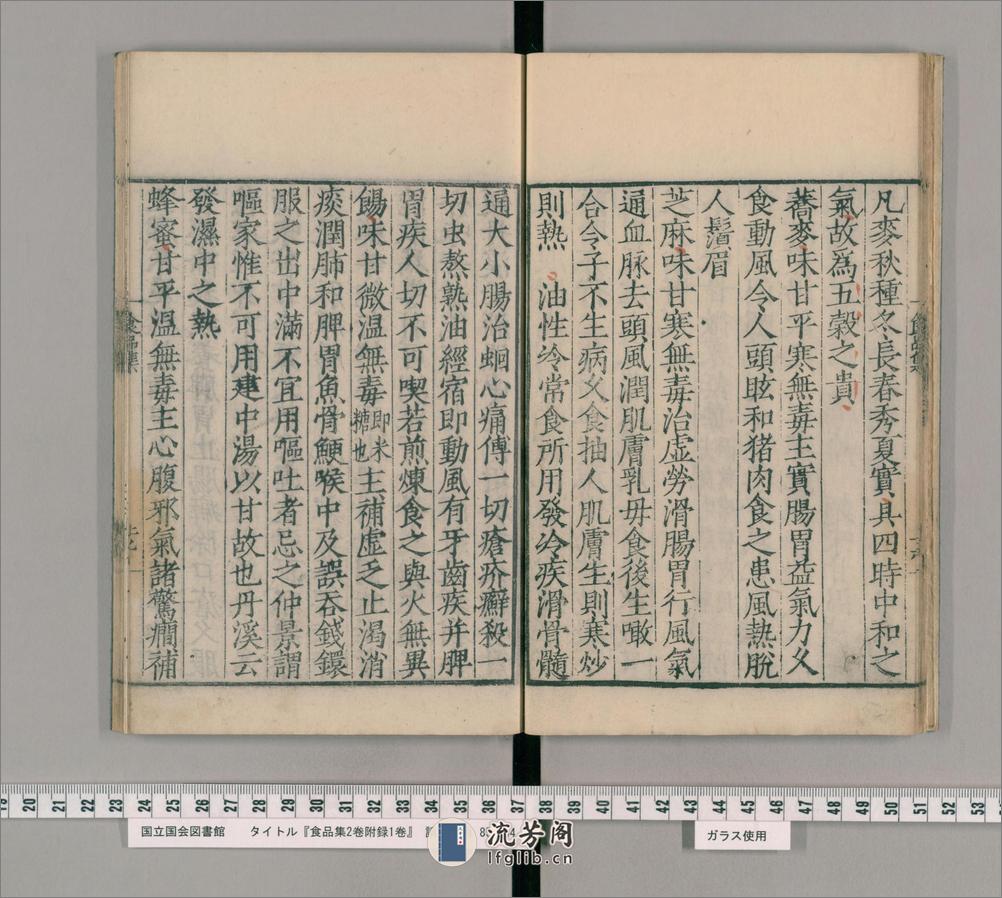 凡麥秋種冬長春秀夏實具四時中和之
氣故爲五穀之貴
蕎麥味甘平寒無毒主實腸胃益氣力久
食動風令人頭眩和猪肉食之患風熱脫
人鬚眉
芝麻味甘寒無毒治虚勞滑腸胃行風氣
通血脉去頭風潤肌膚乳母食後生噉一
合令子不生病久食抽人肌膚生則寒炒
則熱 油性冷常食所用發冷疾滑骨髓
通大小腸治蛔心痛傅一切瘡疥癬殺一
切虫熬熟油經宿即動風有牙齒疾并脾
胃疾人切不可喫若煎煉食之與火無異
餳味甘微温無毒即米糖也主補虚乏止渴消
痰潤肺和脾胃魚骨鯁喉中及誤吞錢鐶
服之出中滿不宜用嘔吐者忌之仲景謂
嘔家惟不可用建中湯以甘故也丹溪云
發濕中之熱
蜂蜜甘平温無毒主心腹邪氣諸驚癇補
食品集
食品集
19 20 21 22 23 24 25 26 27 28 29 30 31 32 33 34 35 36 37 38 39 40 41 42 43 44 45 46 47 48 49 50 51 52 53
国立国会図書館 タイトル『食品集2巻附録1巻』
ガラス使用
流芳阁
lfglib.cn